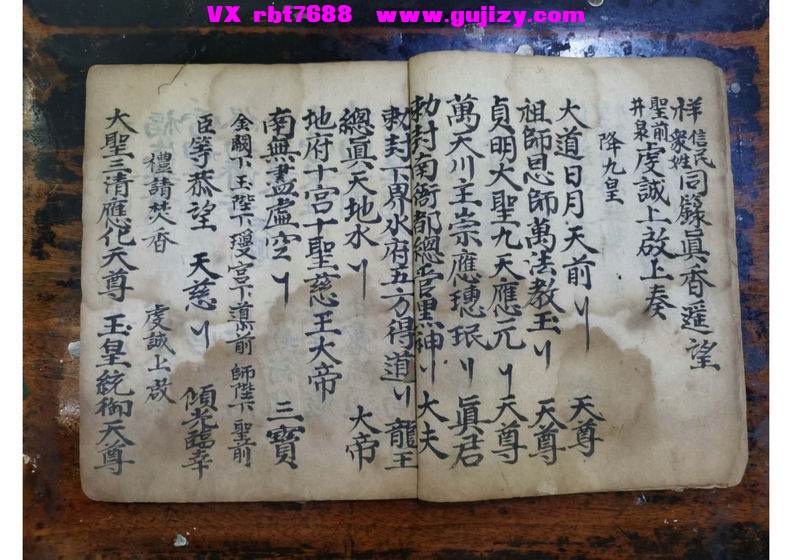 VX rbt7688 www.gujizy.com
祥信民衆姓同籙眞香遥望
聖前井泉虔誠上啟上奏
降九皇
大道日月天前〢天尊
祖師恩師萬法教主〢天尊
貞明大聖九天應元〢天尊
萬天川主崇應璁珉〢眞君
勅封南衙都總管黑神〢大夫
勅封下界水府五方得道〢龍王
總眞天地水〢大帝
地府十宫十聖慈王大帝
南無盡虛空〢三寶
金闕下玉陛下瓊宫下前師陛下聖前
臣等恭望天慈〢傾光臨幸
禮請焚香虔誠上啟
大聖三清應化天尊玉皇統御天尊